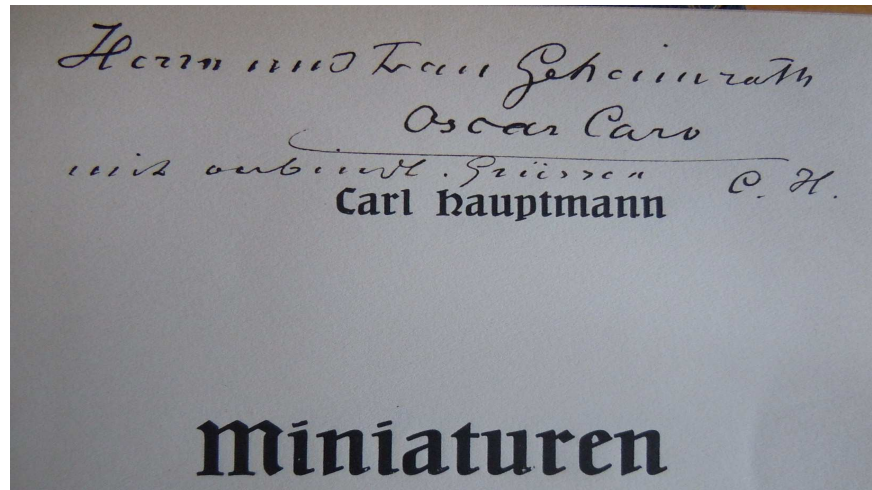 Herrn und Frau Geheimrath
Oscar Caro
mit verbindl. Grüssen C. H.
Carl Hauptmann
Miniaturen